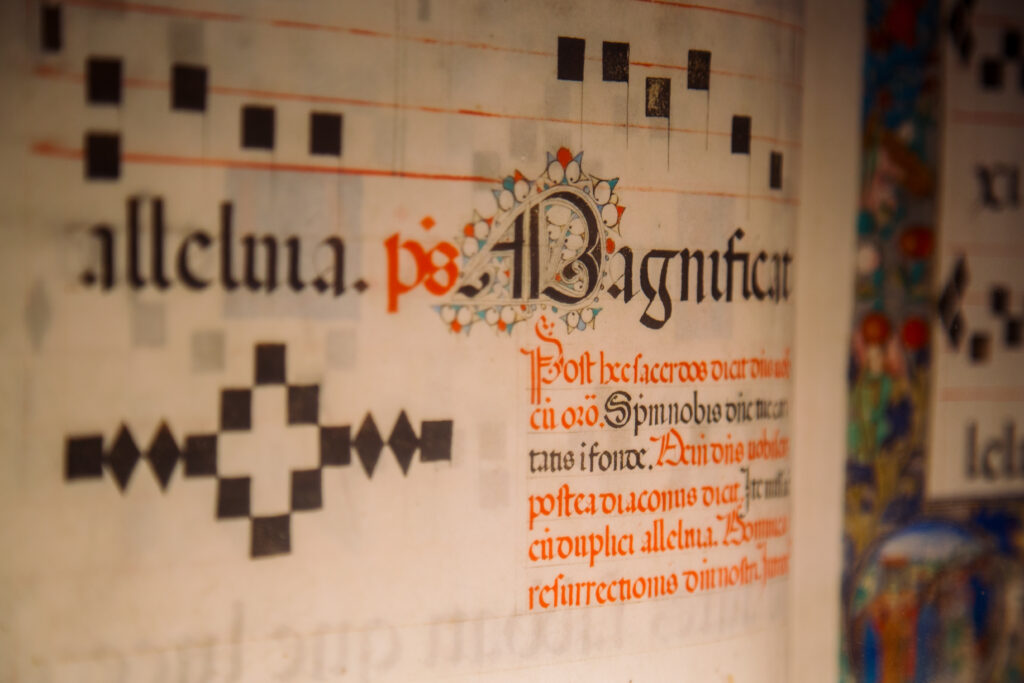 alleluia. ps Magnificat
Post hec sacerdos dicit dns uob
cũ orõ. Spm nobis dñe tue cari
tatis ifonde. Dein dns uobiscũ
postea diaconus dicit. Ite missa
cũ duplici alleluia. Dominica
resurrectionis dni nostri.
xi